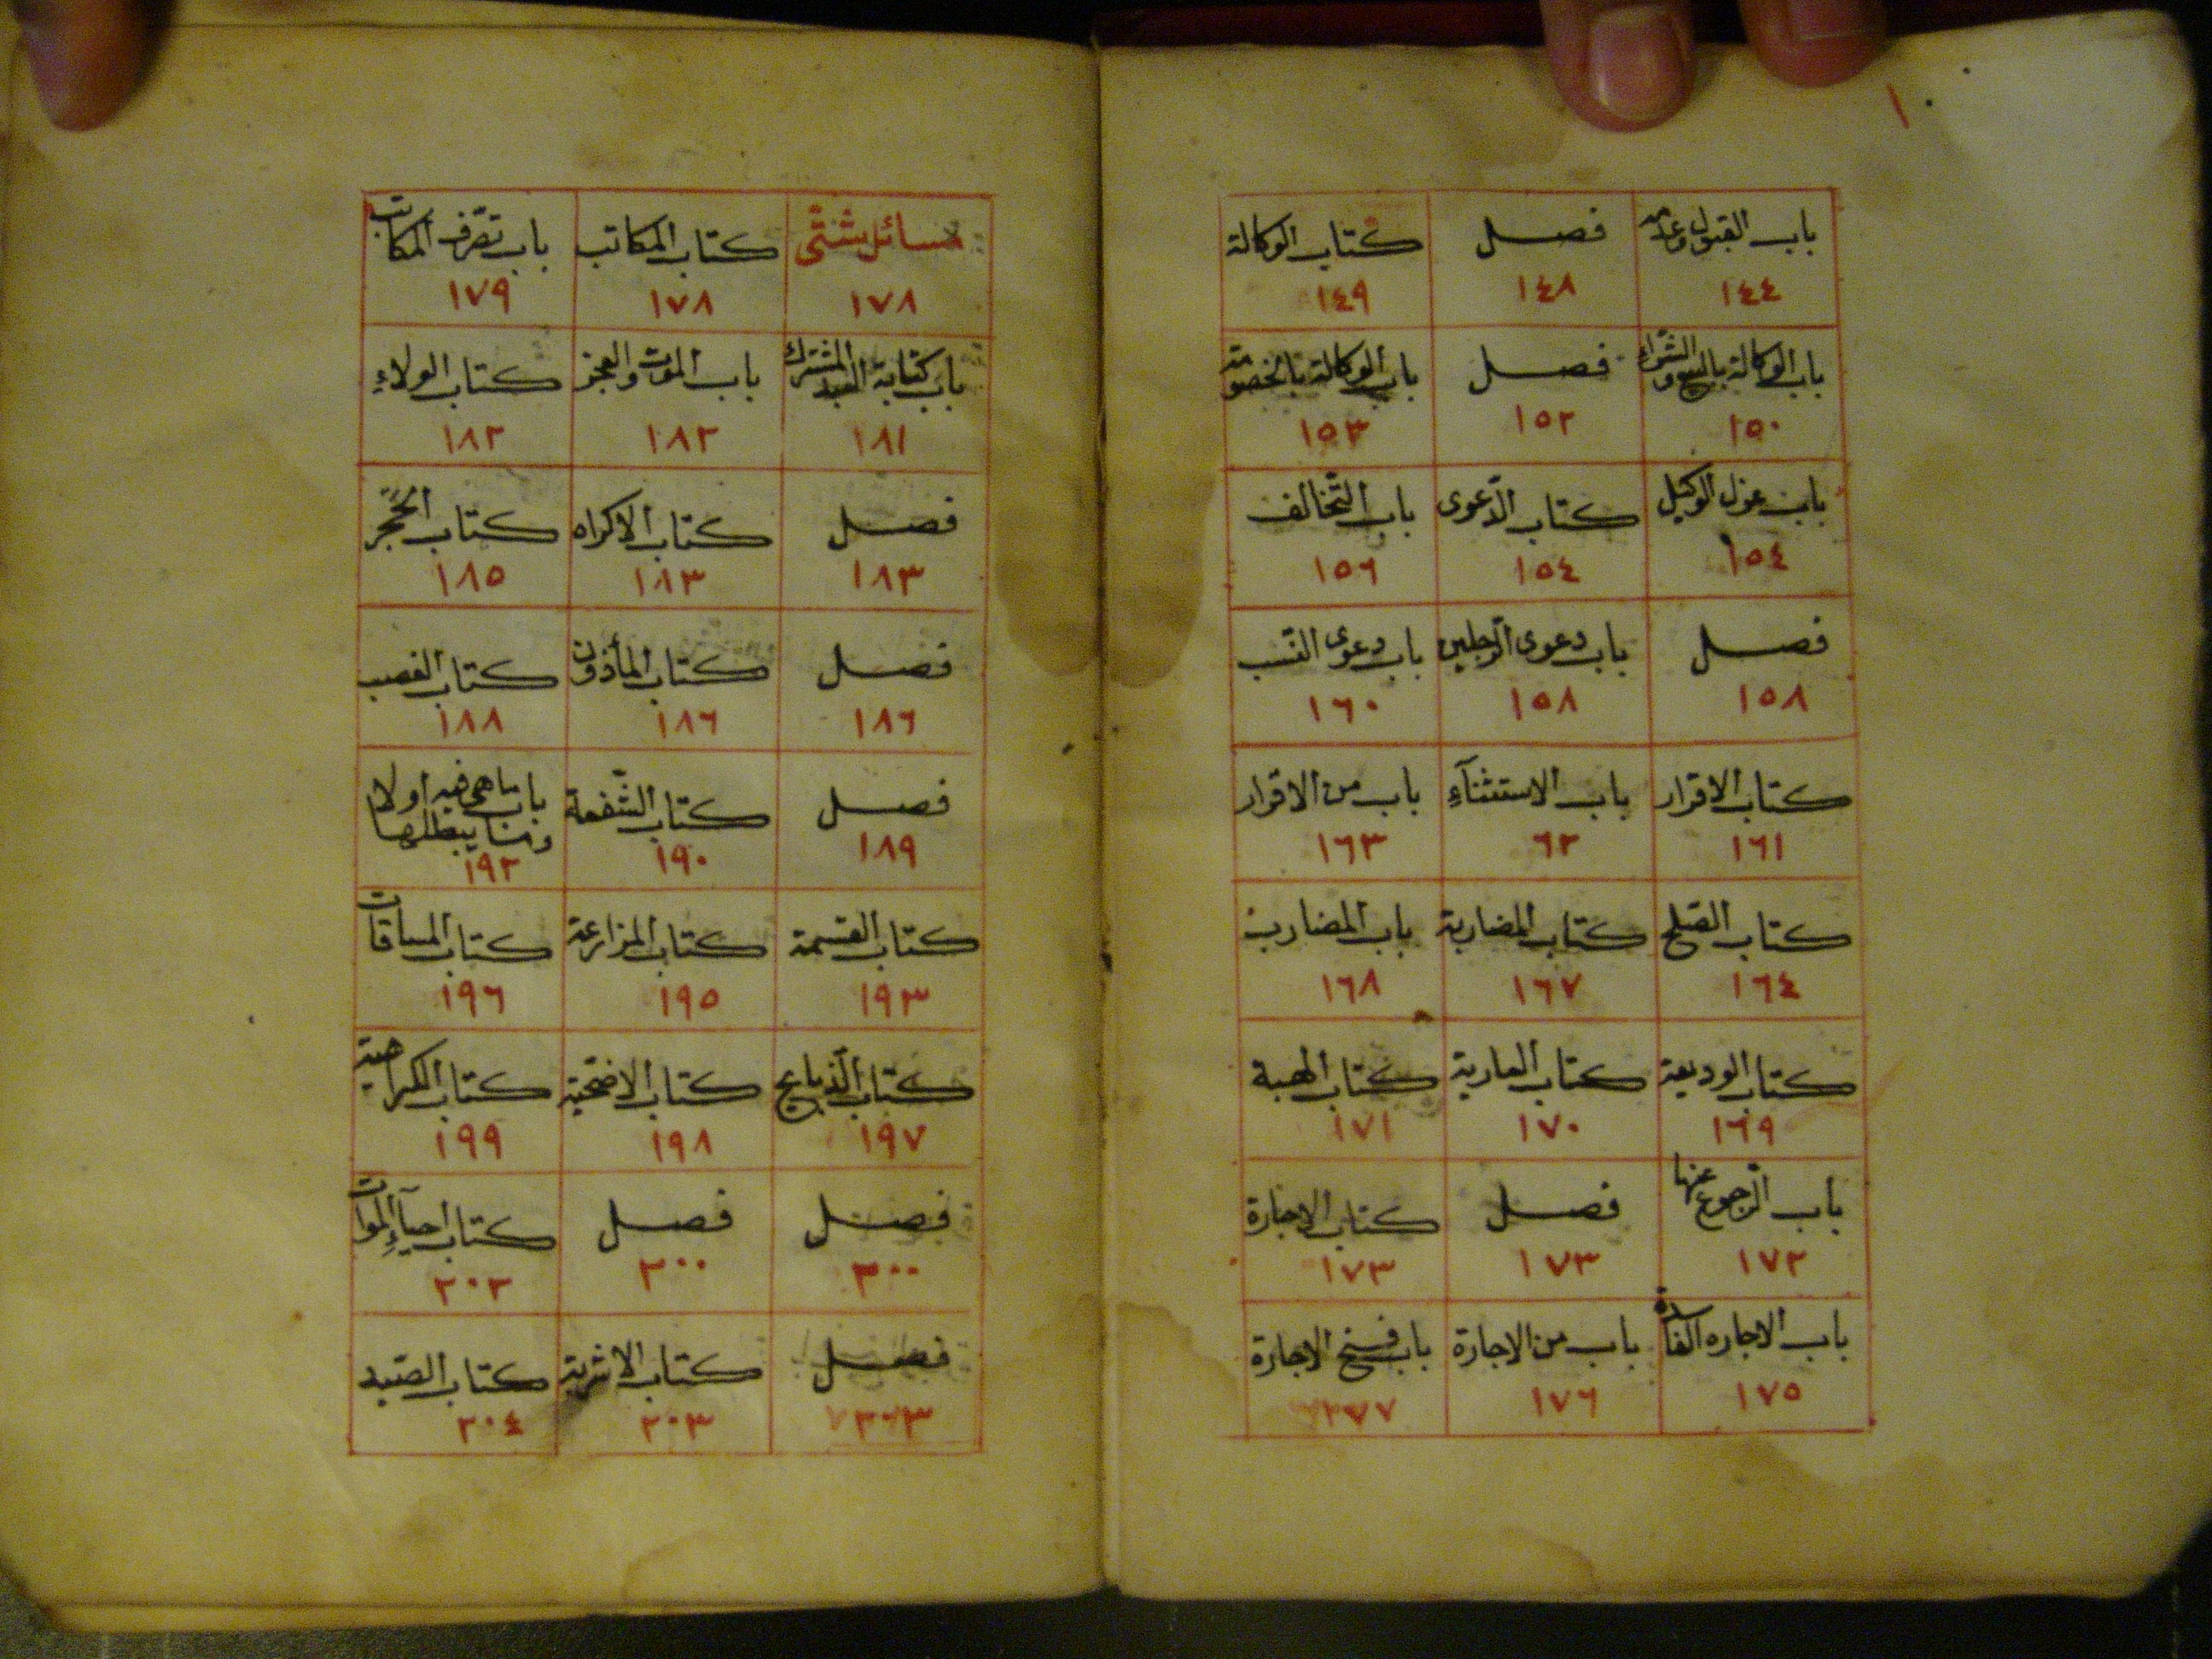 ١
باب القبول وعدمه
١٤٤
فصل
١٤٨
كتاب الوكالة
١٤٩
باب الوكالة بالبيع والشراء
١٥٠
فصل
١٥٢
باب الوكالة بالخصومة
١٥٣
باب عزل الوكيل
١٥٤
كتاب الدّعوى
١٥٤
باب التّخالف
١٥٦
فصل
١٥٨
باب دعوى الرّجلين
١٥٨
باب دعوى النّسب
١٦٠
كتاب الاقرار
١٦١
باب الاستثنآءِ
٦٢
باب من الاقرار
١٦٣
كتاب الصّلح
١٦٤
كتاب المضاربة
١٦٧
باب المضارب
١٦٨
كتاب الوديعة
١٦٩
كتاب العارية
١٧٠
كتاب الهبة
١٧١
باب الرّجوع عنها
١٧٢
فصل
١٧٣
كتاب الاجارة
١٧٣
باب الاجاره الفاسدة
١٧٥
باب من الاجارة
١٧٦
باب فسخ الاجارة
مسائل شتّى
١٧٨
كتاب المكاتب
١٧٨
باب تصّرف المكاتب
١٧٩
باب كتابة العبد المشترك
١٨١
باب الموت والعجز
١٨٢
كتاب الولاءِ
١٨٢
فصل
١٨٣
كتاب الاكراه
١٨٣
كتاب الحَجر
١٨٥
فصل
١٨٦
كتاب المأذون
١٨٦
كتاب الغصب
١٨٨
فصل
١٨٩
كتاب الشّفعة
١٩٠
باب ما هي فيه اولا
وما يبطلها
١٩٢
كتاب القسمة
١٩٣
كتاب المزارعة
١٩٥
كتاب المساقات
١٩٦
كتاب الذّبايح
١٩٧
كتاب الاضحّية
١٩٨
كتاب الكراهية
١٩٩
فصل
٣٠٠
فصل
٢٠٠
كتاب احيآءِ الموات
٢٠٢
فصل
كتاب الاشربة
٢٠٣
كتاب الصّيد
٢٠٤